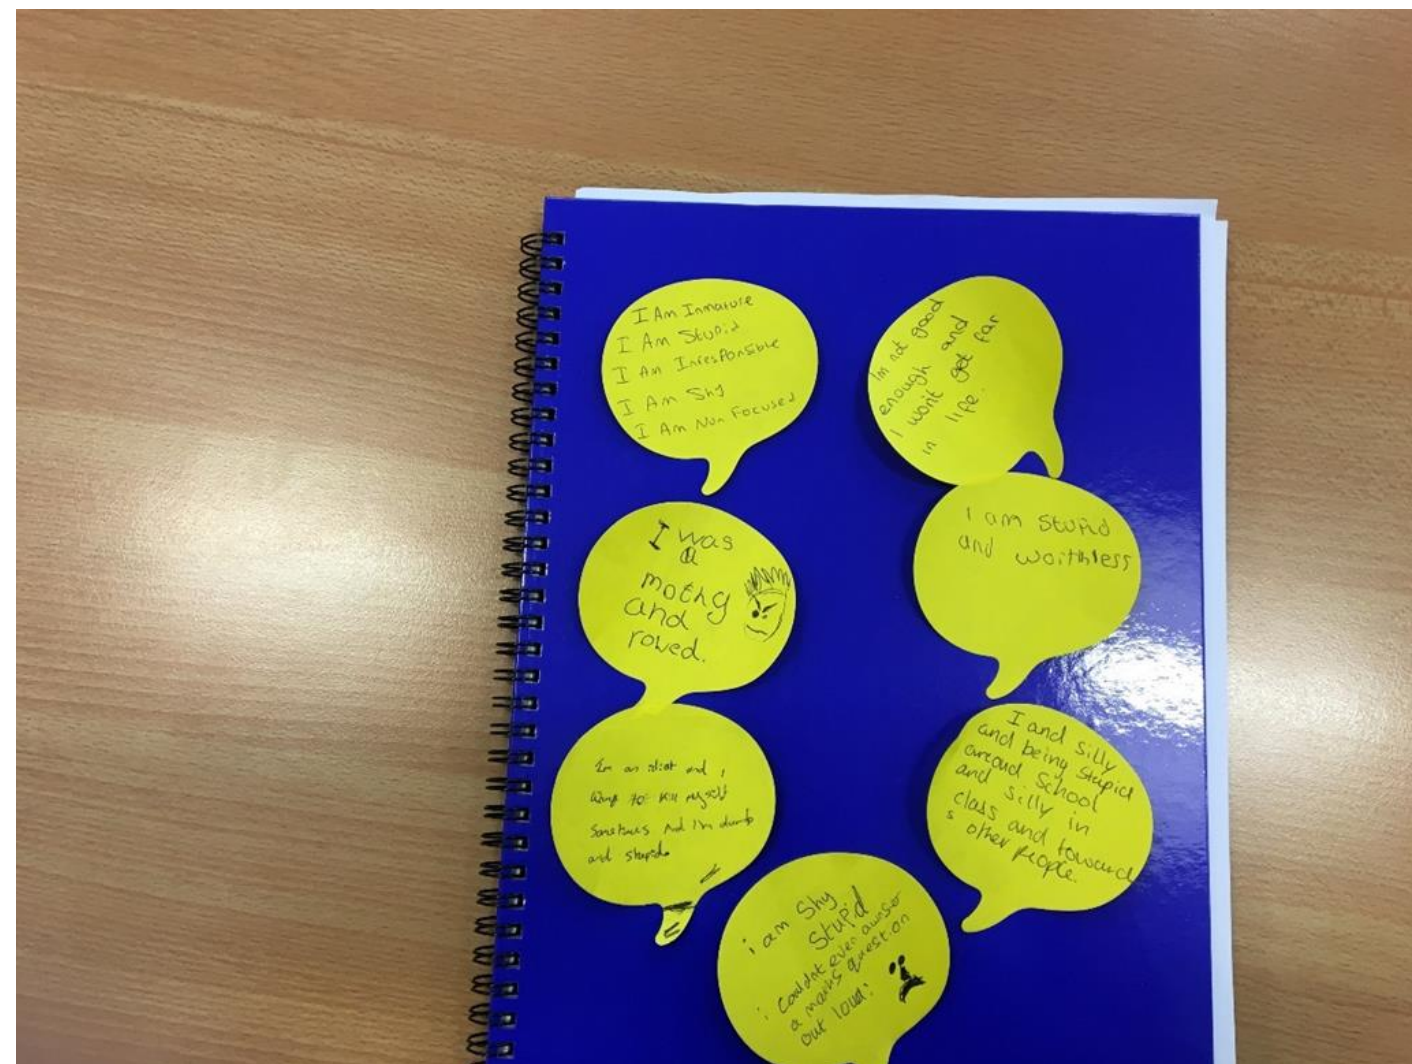 I Am Inmature
I Am Stupid
I Am Inresponsible
I Am Shy
I Am Non Focused
Im not good
enough and
I won't get far
in life.
I was
a
mothg
and
roved.
I am stupid
and woithless
Im an idiot and i
want to kill myself
Sometimes And I'm dumb
and stupid.
I and silly
and being stupid
aroud School
and silly in
class and toward
s other people.
i am Shy
Stupid
i Couldnt even awnser
a maths question
out loud!